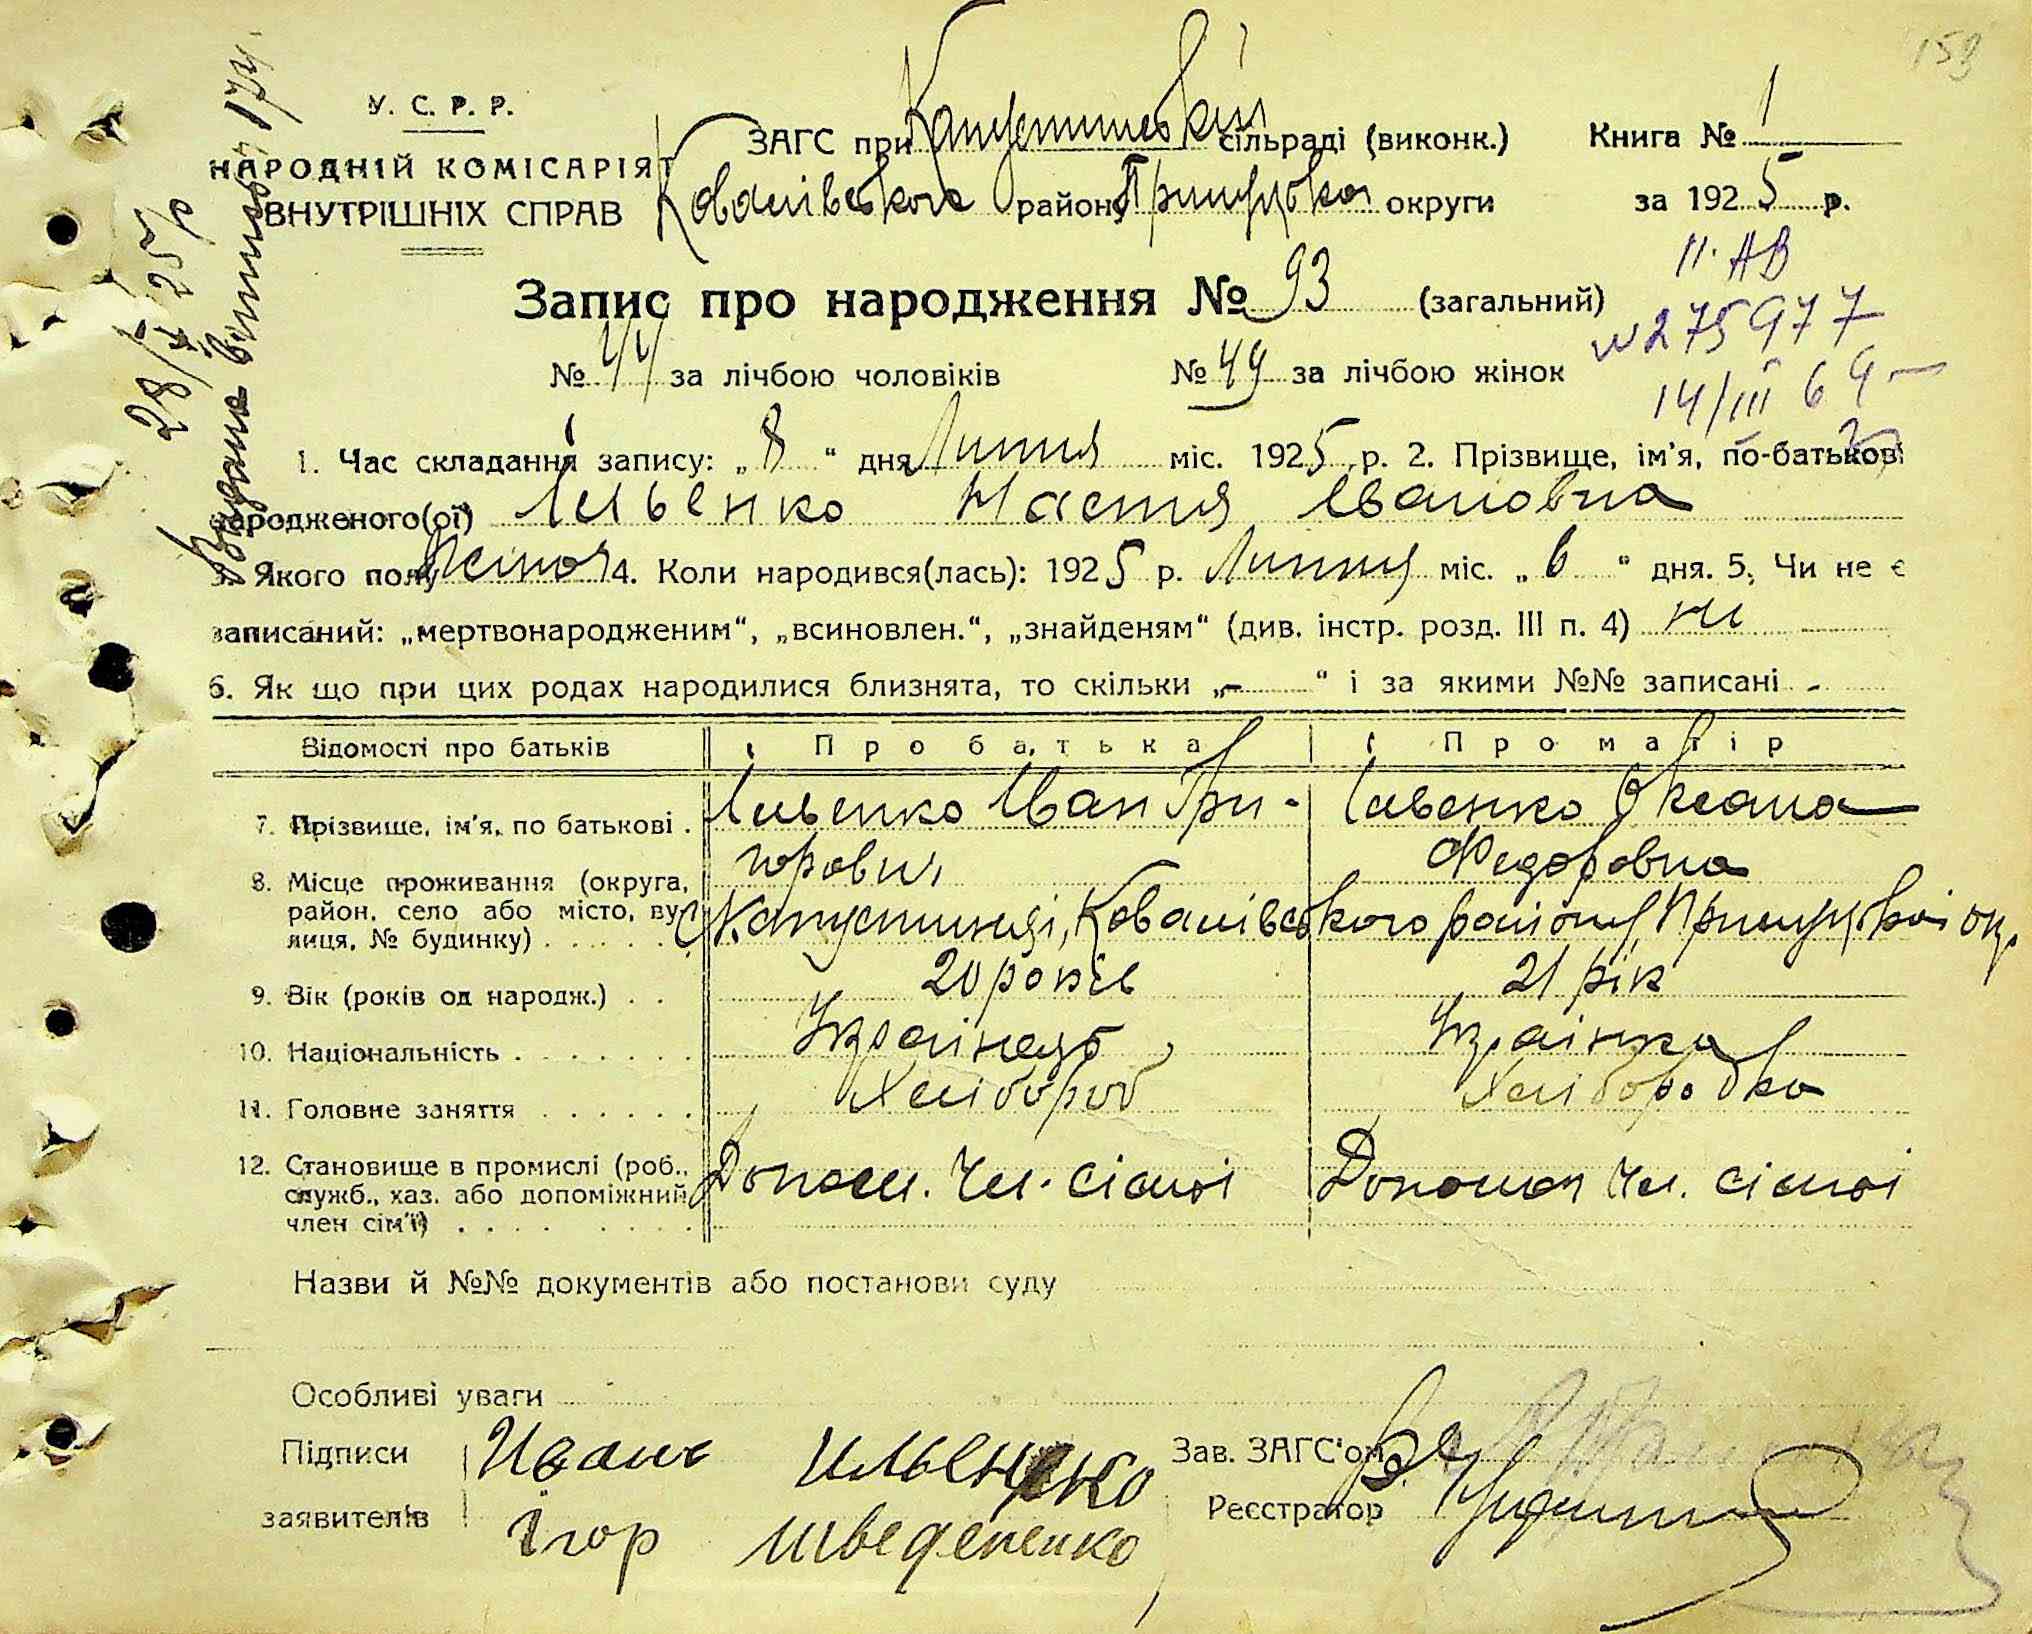 159
У. С. Р. Р.
НАРОДНІЙ КОМІСАРІЯТ
ВНУТРІШНІХ СПРАВ
ЗАГС при Капустинській сільраді (виконк.)
Ковалівського району Прилуцької округи
Книга № 1
за 1925 р.
Запис про народження № 93 (загальний)
№ 44 за лічбою чоловіків
№ 49 за лічбою жінок
II. АВ
№ 275977
14/III 69
28/X 25 р
Видано витяг 174
1. Час складання запису: „8“ дня Липня міс. 1925 р. 2. Прізвище, ім'я, по-батькові
народженого(ої) Ільєнко Настя Івановна
3. Якого полу Жіноч 4. Коли народився(лась): 1925 р. Липня міс. „6“ дня. 5. Чи не є
записаний: „мертвонародженим“, „всиновлен.“, „знайденям“ (див. інстр. розд. III п. 4) ні
6. Як що при цих родах народилися близнята, то скільки „-“ і за якими №№ записані -
Відомості про батьків
Про батька
Про матір
7. Прізвище, ім'я, по батькові
Ільєнко Іван Гри-
горович
Ільєнко Оксана
Федоровна
8. Місце проживання (округа,
район, село або місто, ву-
лиця, № будинку)
с. Капустинці, Ковалівського району, Прилуцької окр.
9. Вік (років од народж.)
20 років
21 рік
10. Національність
Українець
Українка
11. Головне заняття
Хлібороб
Хліборобка
12. Становище в промислі (роб.,
служб., хаз. або допоміжний
член сім'ї)
Допом. чл. сімї
Допомоч чл. сімї
Назви й №№ документів або постанови суду
Особливі уваги
Підписи
заявителів
Иванъ Ильенко
Ігор Шведененко
Зав. ЗАГС'ом
Реєстратор